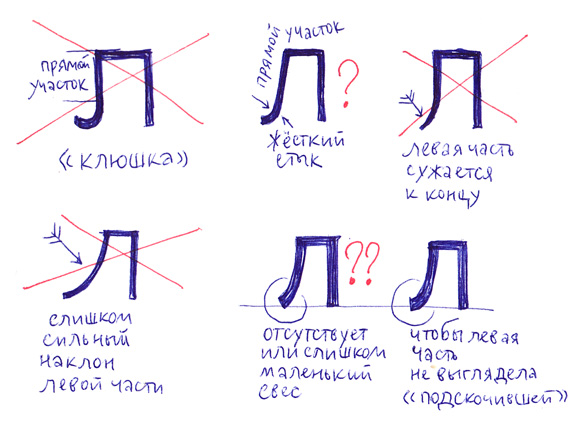 Л
прямой
участок
«клюшка»
Л
прямой участок
?
жёсткий
стык
Л
левая часть
сужается
к концу
Л
слишком
сильный
наклон
левой части
Л
??
отсутствует
или слишком
маленький
свес
Л
чтобы левая
часть
не выглядела
«подскочившей»